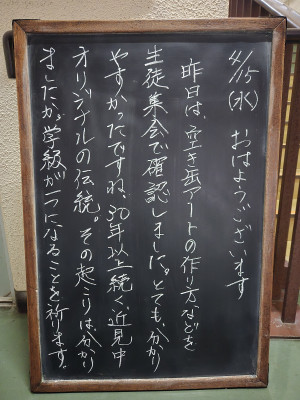 4/15(水) おはようございます
昨日は、空き缶アートの作り方などを
生徒集会で確認しました。とても、分かり
やすかったですね。30年以上続く、近見中
オリジナルの伝統。その起こりは、分かり
ましたか。学級が一つになることを祈ります。